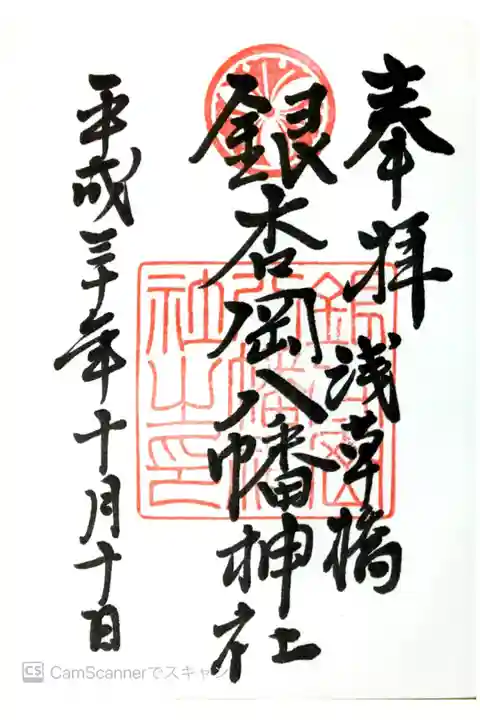 奉拝 浅草橋
銀杏岡八幡神社
平成三十年十月十日
CS CamScannerでスキャン